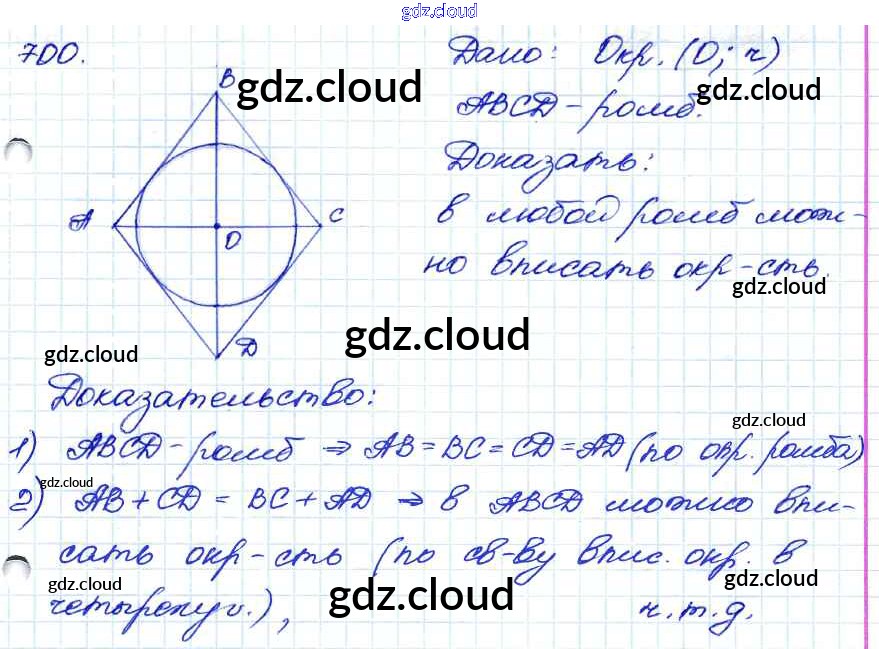 gdz.cloud
700.
Дано: Окр. (О; r)
B
gdz.cloud
gdz.cloud
ABCD - ромб.
Доказать:
A
C
O
в любой ромб мож-
но вписать окр-сть.
gdz.cloud
gdz.cloud
gdz.cloud
D
Доказательство:
gdz.cloud
1) ABCD - ромб ⇒ AB = BC = CD = AD (по опр. ромба)
gdz.cloud
2) AB + CD = BC + AD ⇒ в ABCD можно впи-
сать окр-сть (по св-ву впис. окр. в
gdz.cloud
gdz.cloud
gdz.cloud
четырехуг.), ч.т.д.